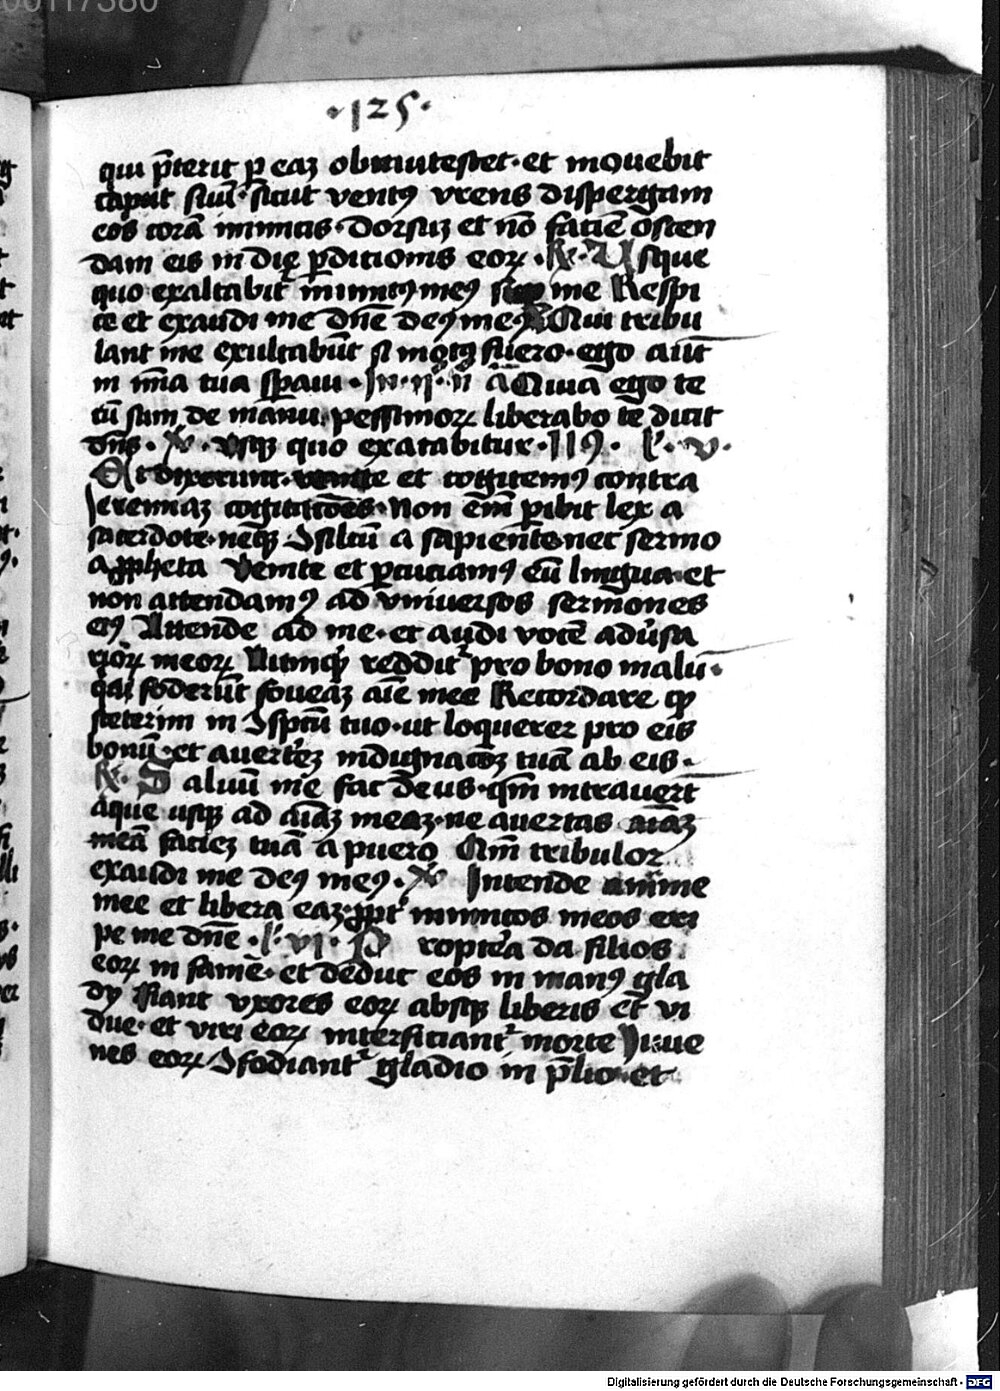 00117380
·125·
qui p̄terit p eaz obstupescet· et mouebit
caput suū· sicut ventꝯ vrens dispergam
eos corā inimicis· dorsuz et nō faciē ostēn
dam eis in die p̄ditionis eoꝝ· ℟· Usque
quo exaltabit᷑ inimicꝯ meꝯ sup me Respi
ce et exaudi me dn̄e deꝯ meꝯ ℣ Qui tribu
lant me exultabūt si motꝯ fuero· ego aūt
in mīa tua sp̄aui· In· ij· n̄ ā Quia ego te
cū sum de manu pessimoꝝ liberabo te dicit
dn̄s· ℣· vsqꝫ quo exarabitur· 119· l'· v·
Et dixerunt· venite et cogitemꝯ contra
Jeremiaz cogitatōes· Non em̄ pibit lex a
sacerdote· neqꝫ ꝯsiliū a sapiente· nec sermo
a ꝓpheta Venite et ꝑcuciamꝯ eū lingua· et
non attendamꝯ ad vniuersos sermones
eiꝯ Attende ad me· et audi vocē aduīsa
rioꝝ meoꝝ Nūmqꝫ reddit᷑ pro bono malū·
qui foderūt foueaz aīe mee Recordare ꝙ
steterim in ꝯspctū tuo· ut loquerer pro eis
bonū· et auerterez indignatōez tuā ab eis·
℟· Saluū me fac deus· qm̄ intrauert
aque usqꝫ ad aīaz meaz· ne auertas aīaz
meā faciez tuā a puero Qm̄ tribulor
exaudi me deꝯ meꝯ· ℣ Intende anime
mee et libera eaz· ꝓpt᷑ inimicos meos eri
pe me dn̄e· l'· vi· Propterea da filios
eoꝝ in famē· et deduc eos in manꝯ gla
dij fiant vxores eoꝝ absqꝫ liberis et vi
due· et viri eoꝝ interficiant᷑ morte Juue
nes eoꝝ ꝯfodiant᷑ gladio in p̄lio· et
Digitalisierung gefördert durch die Deutsche Forschungsgemeinschaft - DFG